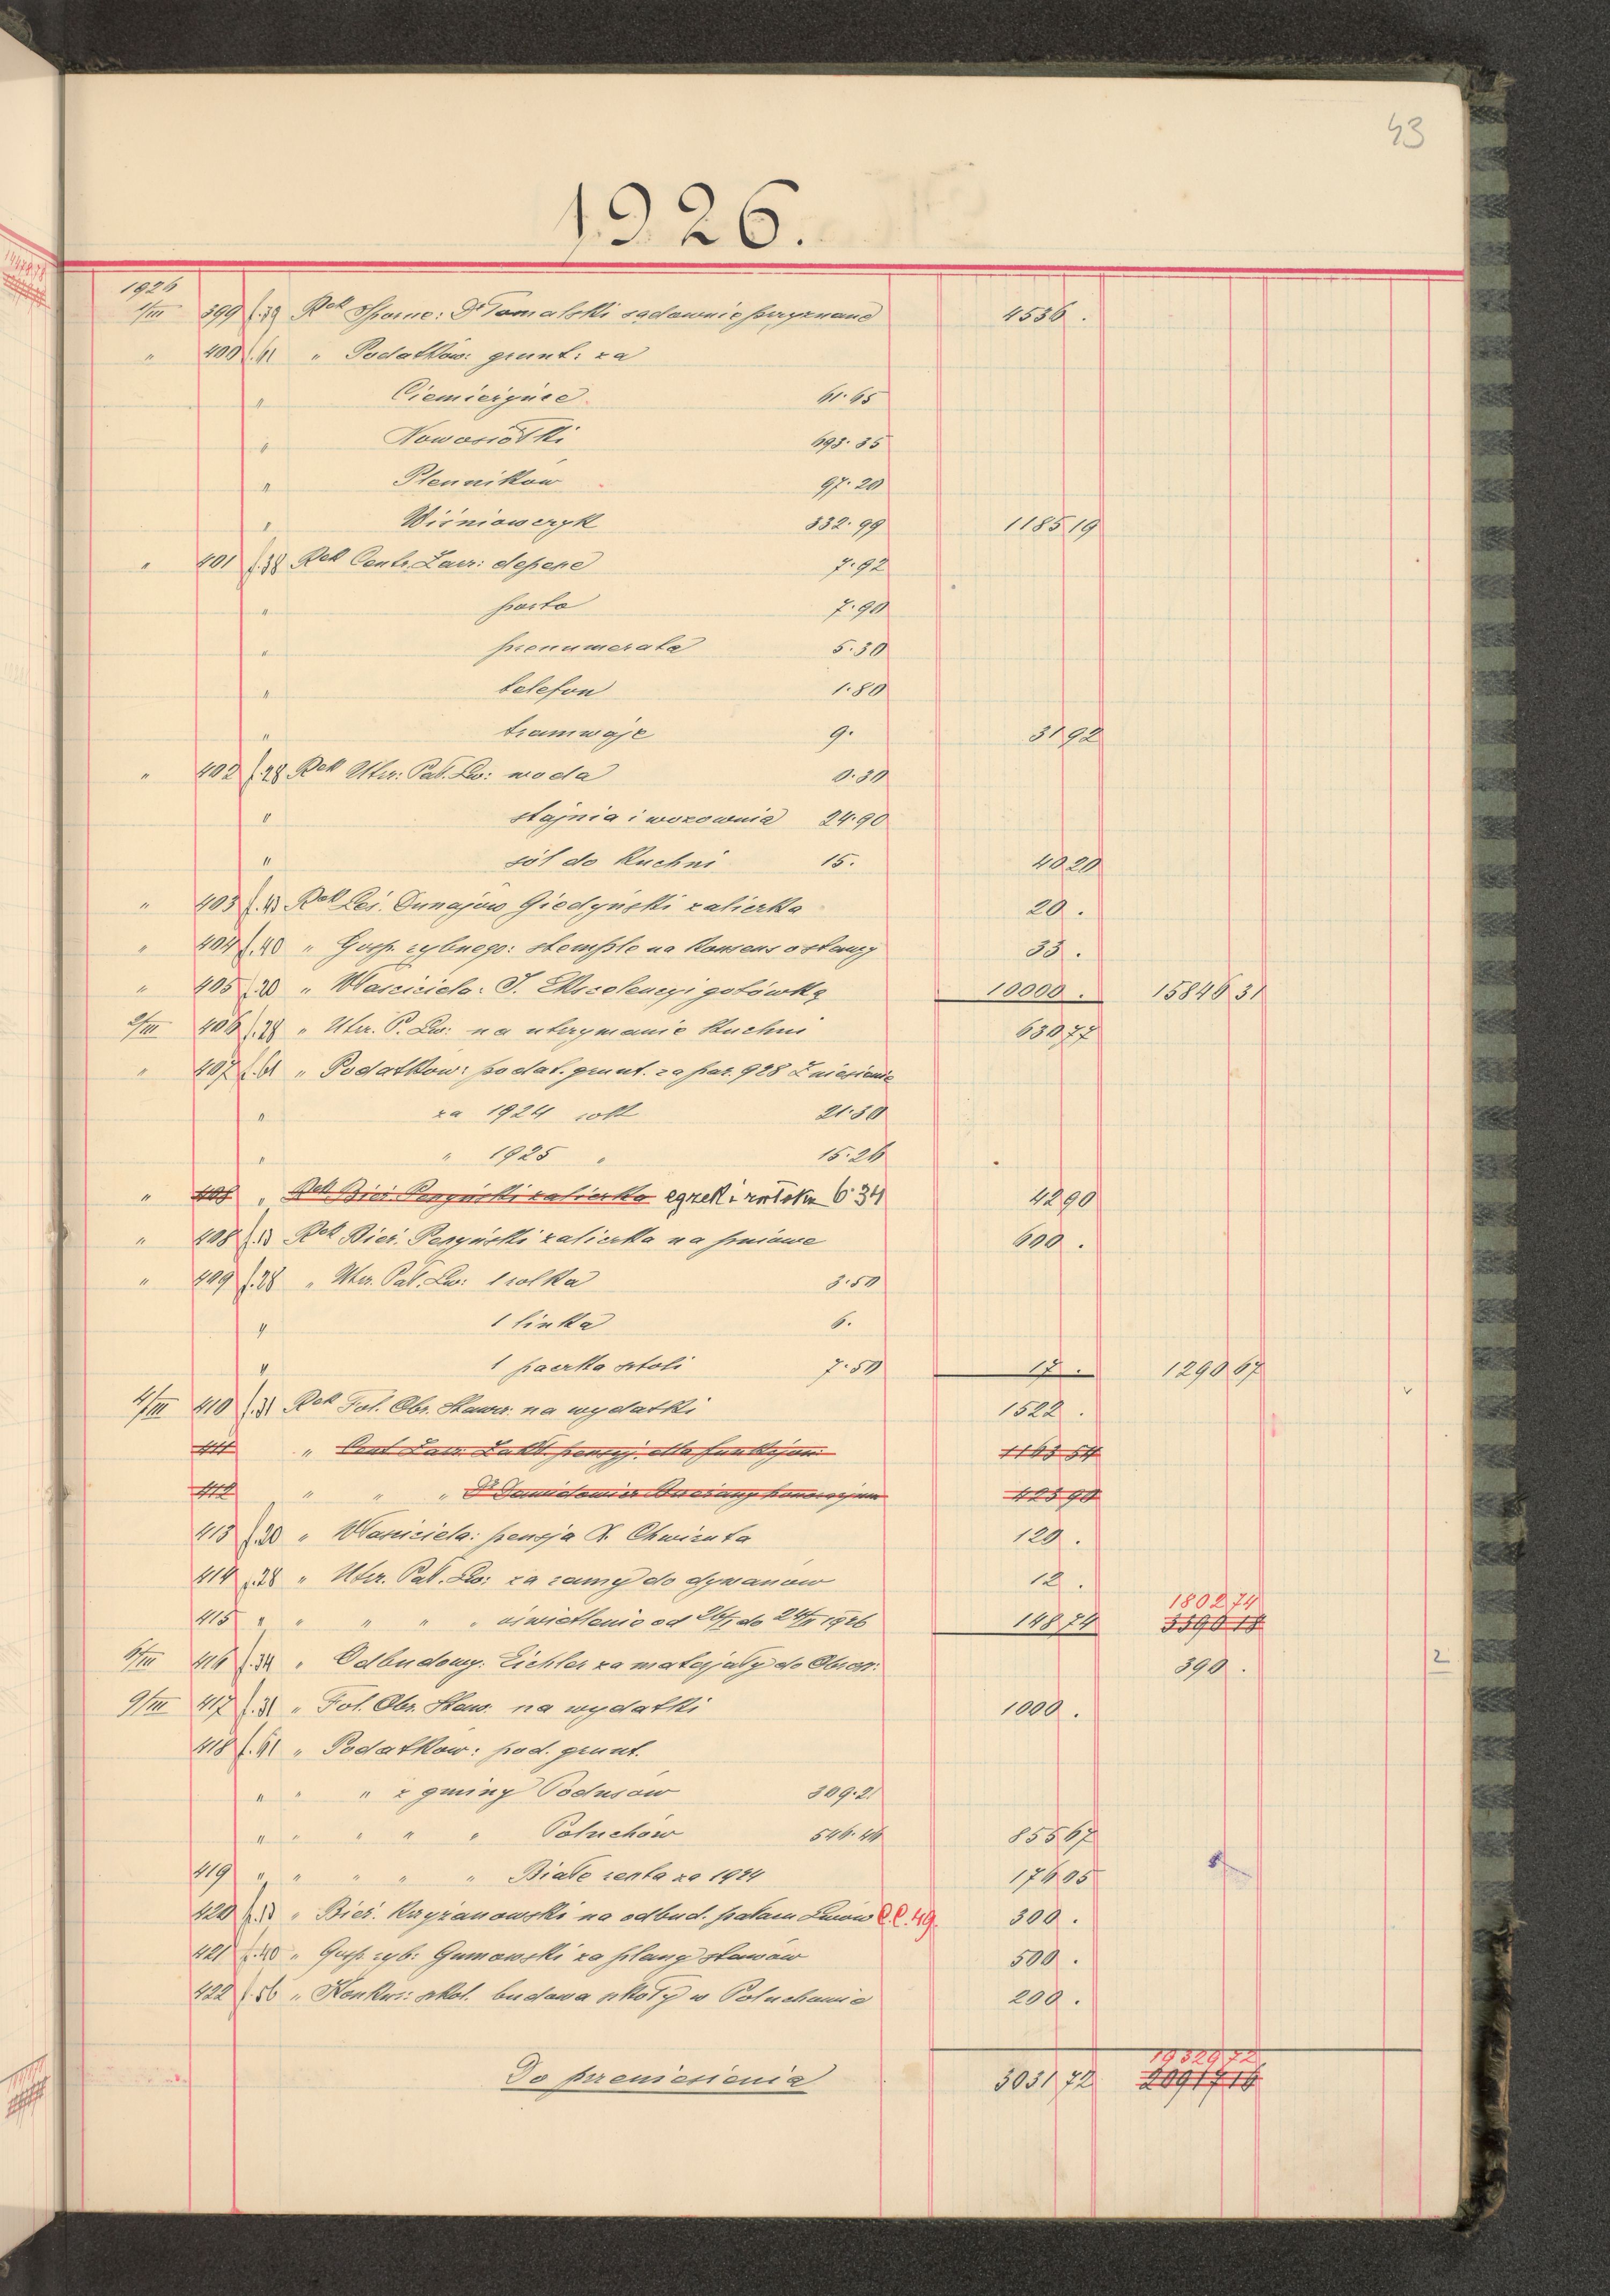 43
1926.
1926
1/III 399 f.39 Rek Sporne: Dr Tomalski sądownie przyznane 4536.
" 400 f.61 " Podatków: grunt: za
" Ciemierzyńce 61.65
" Nowosiółki 693.35
" Plenników 97.20
" Wiśniowczyk 332.99 1185 19
" 401 f.38 Rek Centr. Zarz: depesze 7.92
" porto 7.90
" prenumerata 5.30
" telefon 1.80
" tramwaje 9. 31 92
" 402 f.28 Rek Utrz: Pał. Lw: woda 0.30
" stajnia i wozownia 24.90
" sól do kuchni 15. 40 20
" 403 f.43 Rek Leś. Dunajów Giedyński zaliczka 20.
" 404 f.40 " Gosp. rybnego: stemple na konsens o stawy 33.
" 405 f.20 " Właściciela: J. Ekscelencyi gotówką 10000. 15846 31
2/III 406 f.28 " Utrz. P. Lw: na utrzymanie kuchni 630 77
" 407 f.61 " Podatków: podat. grunt. za par. 928 Zniesienie
" za 1924 rok 21.30
" " 1925 " 15.26
" 408 " Rek Bież: Peszyński zaliczka egzek. i zwłoka 6.34 42 90
" 408 f.13 Rek Bież. Peszyński zaliczka na pniowe 600.
" 409 f.28 " Utrz. Pał. Lw: 1 rolka 3.50
" 1 linka 6.
" 1 paczka stoli 7.50 17. 1290 67
4/III 410 f.31 Rek Fol. Obr. Stawcz. na wydatki 1522.
411 " Cent Zarz: Zakł. pensyj. dla funkcjon: 1163 54
412 " " " Dr Dawidowicz 423 90
413 f.20 " Właściciela: pensja X. Chwiruta 120.
414 f.28 " Utrz. Pał. Lw: za ramy do dywanów 12.
180274
415 " " " " " oświetlenie od 26/I do 24/II 1926 148 74 3390 18
6/III 416 f.34 " Odbudowy: Eichler za materjały do Obrosz: 390. 2
9/III 417 f.31 " Fol. Obr. Staw. na wydatki 1000.
418 f.61 " Podatków: pod. grunt.
" " " z gminy Podusów 309.21
" " " " " Połuchów 546.46 855 67
419 " " " " " Białe renta za 1924 176 05
420 f.13 " Bież. Krzyżanowski na odbud. pałacu Lwów C.C.49. 300.
421 f.40 " Gosp. ryb: Gumowski za plany stawów 500.
422 f.56 " Konkur: szkol. budowa szkoły w Połuchowie 200.
1932972
Do przeniesienia 3031 72 20917 16